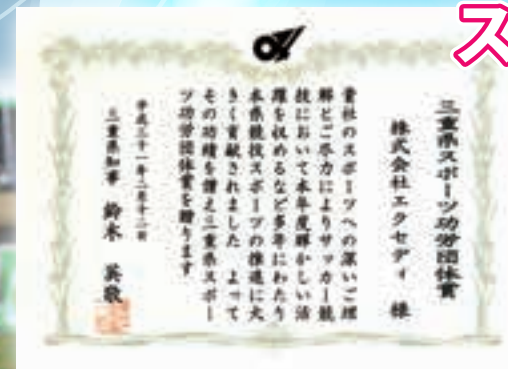 ス
三重県スポーツ功労団体賞
株式会社エクセディ 様
貴社のスポーツへの深いご理
解とご尽力によりサッカー競
技において本年度輝かしい活
躍を収めるなど多年にわたり
本県競技スポーツの推進に大
きく貢献されました よって
その功績を讃え三重県スポー
ツ功労団体賞を贈ります
平成三十一年二月十二日
三重県知事 鈴木 英敬